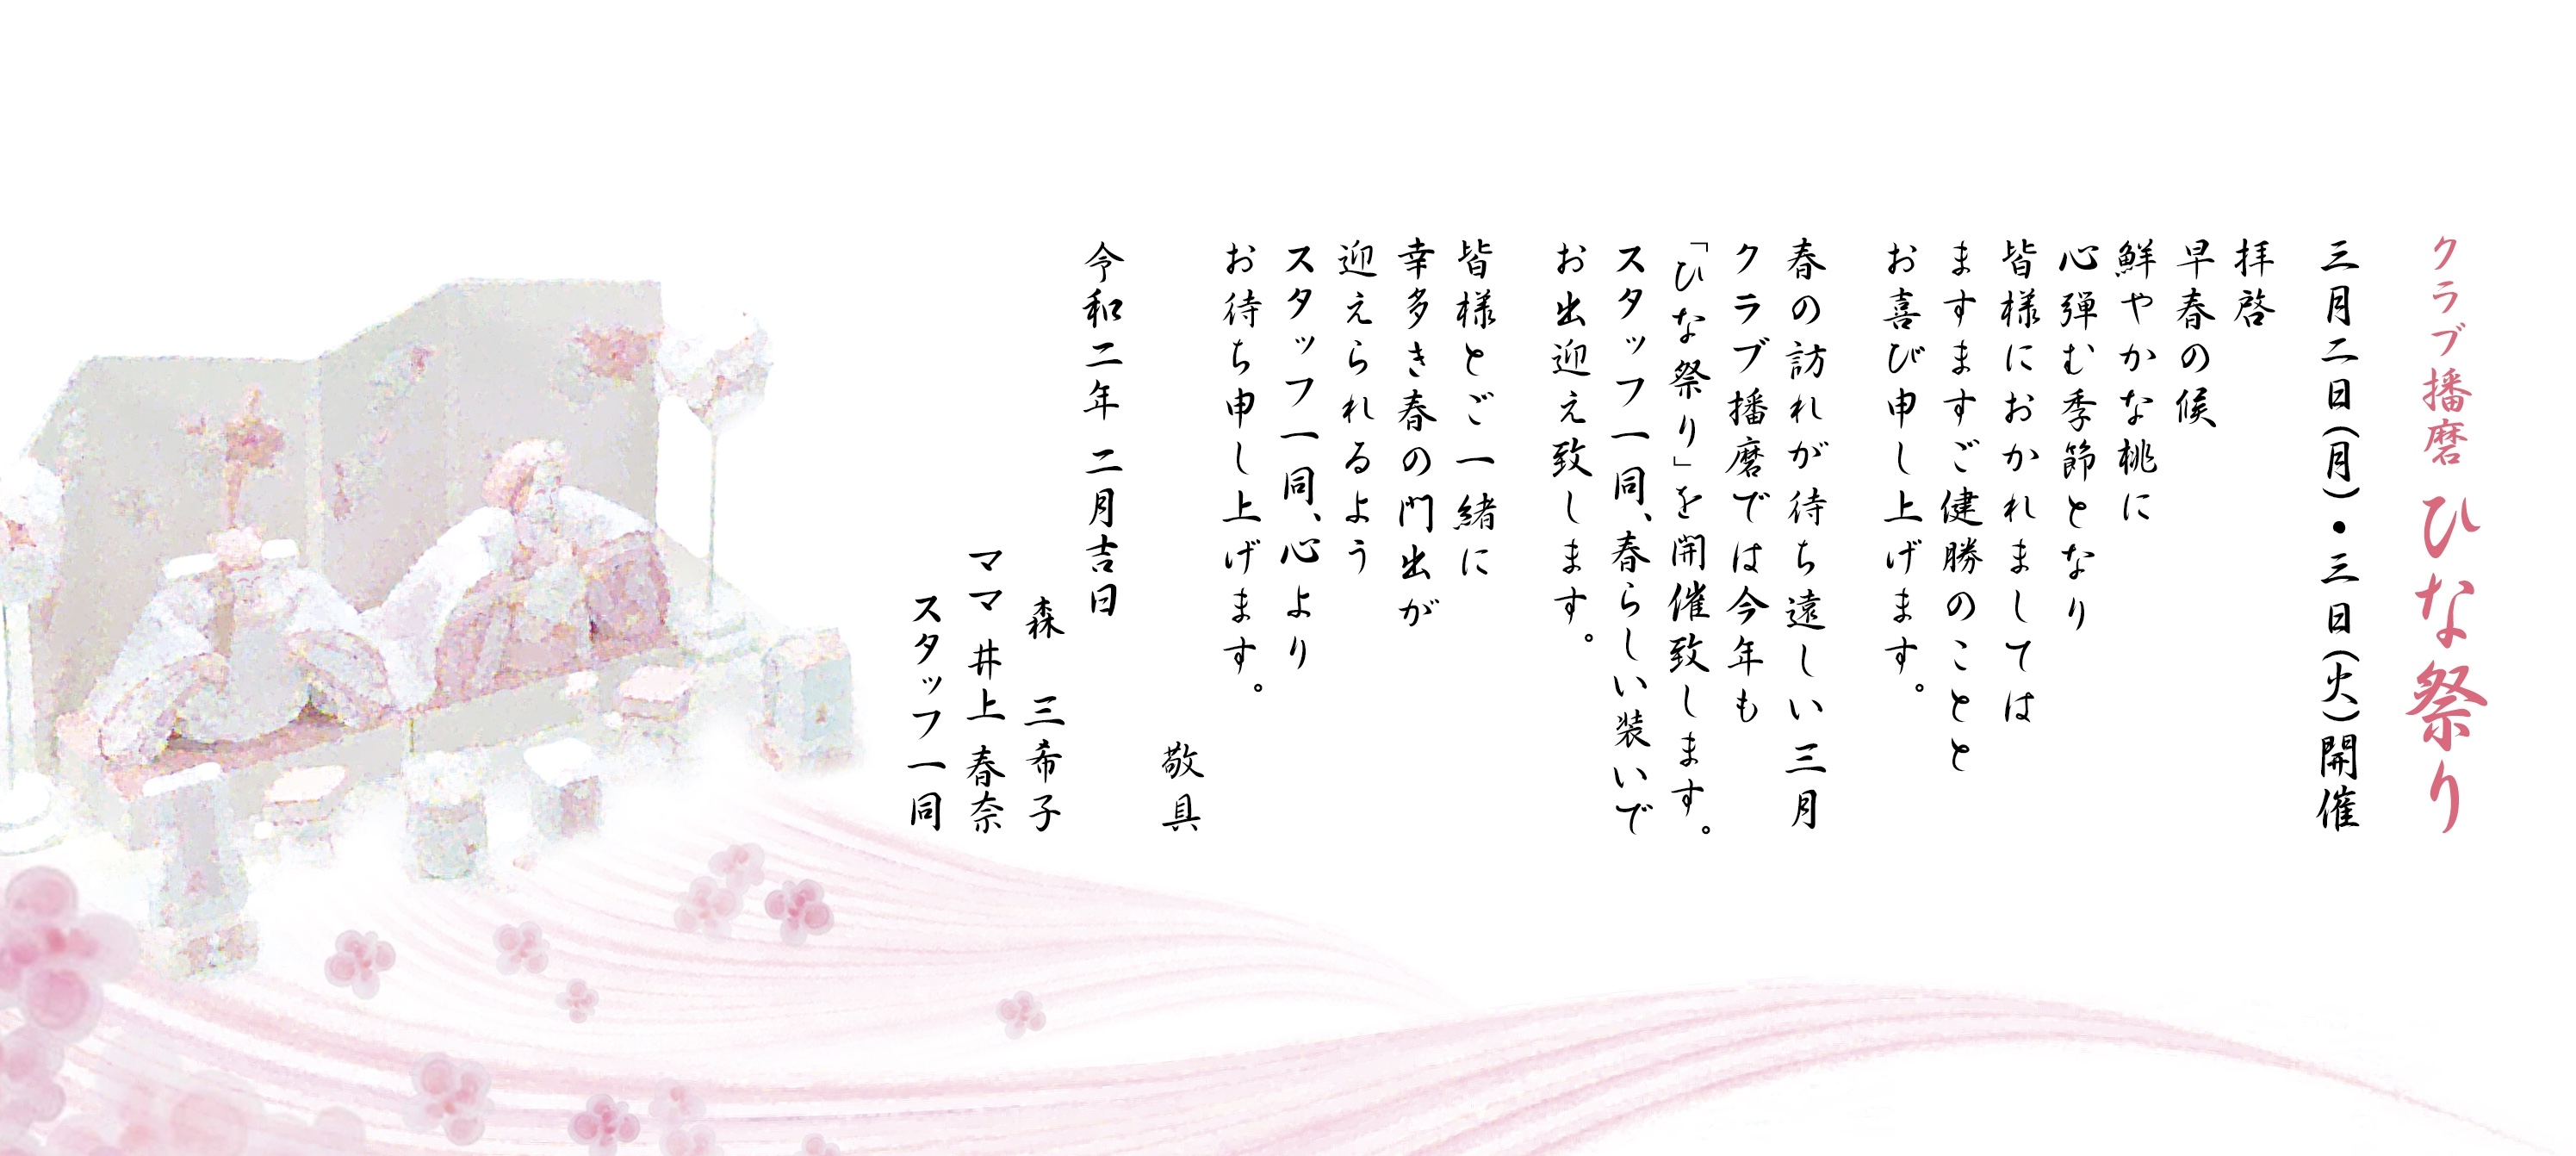 クラブ播磨 ひな祭り
三月二日(月)・三日(火)開催
拝啓
早春の候
鮮やかな桃に
心弾む季節となり
皆様におかれましては
ますますご健勝のことと
お喜び申し上げます。
春の訪れが待ち遠しい三月
クラブ播磨では今年も
「ひな祭り」を開催致します。
スタッフ一同、春らしい装いで
お出迎え致します。
皆様とご一緒に
幸多き春の門出が
迎えられるよう
スタッフ一同、心より
お待ち申し上げます。
敬具
令和二年 二月吉日
森 三希子
ママ 井上 春奈
スタッフ一同